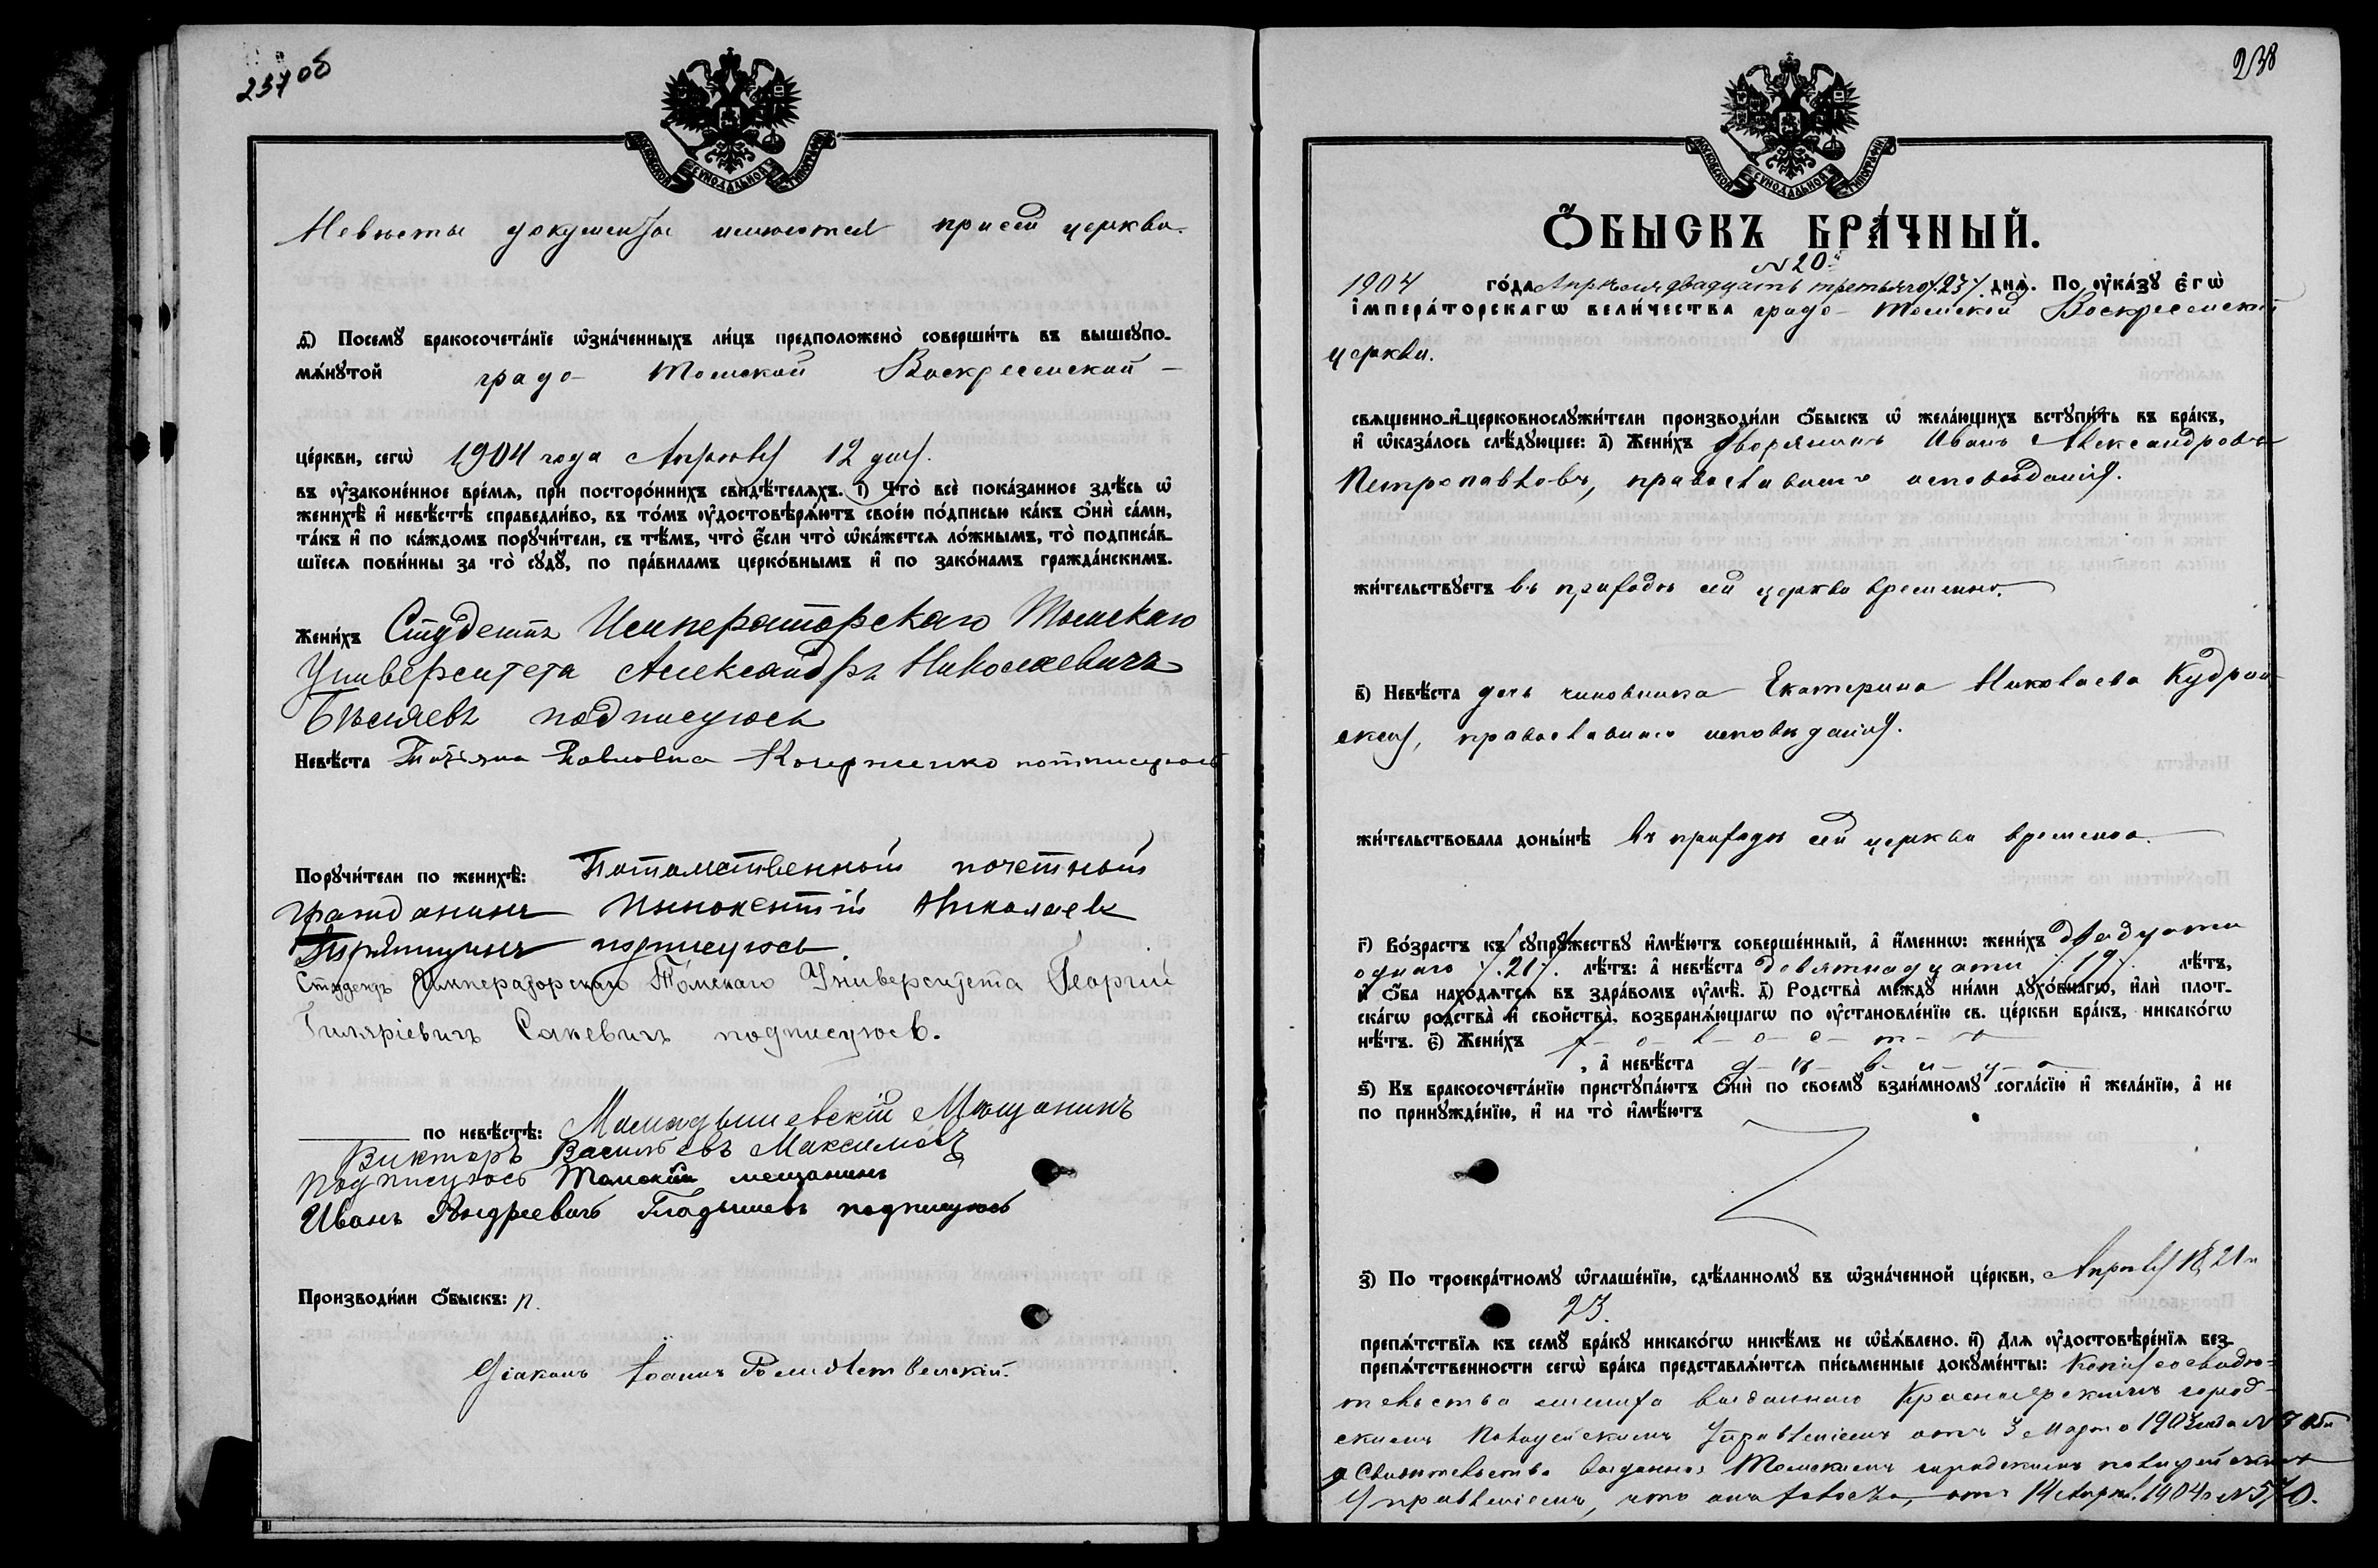 237 об
МОСКОВСКОЙ СѴНОДАЛЬНОЙ ТИПОГРАФІИ
Невѣсты документы имеются при сей церкви.
д҃) Посемꙋ бракосочета́нїе ѡ҆зна́ченныхъ ли́цъ предположено̀ соверши́ть въ вышеꙋпо-
мѧ́нꙋтой градо-Томской Воскресенской
це́ркви, сегѡ̀ 1904 года Апрѣля 12 дня.
въ ᲂу҆законе́нное вре́мѧ, при посторо́ннихъ свидѣ́телѧхъ. і҃) Что̀ всѐ пока́занное здѣ́сь ѡ҆
женихѣ̀ и҆ невѣ́стѣ справедли́во, въ то́мъ ᲂу҆достовѣрѧ́ютъ свое́ю по́дписью ка́къ ѻ҆нѝ са́ми,
та́къ и҆ по ка́ждомъ порꙋчи́тели, съ тѣ́мъ, что̀ є҆́сли что̀ ѡ҆ка́жетсѧ ло́жнымъ, то̀ подписа́в-
шїесѧ пови́нны за то̀ сꙋдꙋ̀, по пра́виламъ церко́внымъ и҆ по зако́намъ гражда́нскимъ.
Жени́хъ Студентъ Императорскаго Томскаго
Университета Александръ Николаевичъ
Бѣляевъ подписуюсь
Невѣ́ста Татіяна Павловна потписуюсь
Порꙋчи́тели по женихѣ̀: Потомственный почетный
гражданинъ Иннокентій Николаев
подписуюсь.
Студентъ Императорскаго Томскаго Университета Георгий
Гиляріевичъ Сакевичъ подписуюсь.
по невѣ́стѣ: Мамадышевскій Мѣщанинъ
Викторъ Васильевъ Максимовъ
подписуюсь Томскій мещанинъ
Иванъ Андреевичъ Гладышевъ подписуюсь
Производи́ли ѻ҆́быскъ: п.
Діаконъ Іоаннъ Рождественскій.
238
МОСКОВСКОЙ СѴНОДАЛЬНОЙ ТИПОГРАФІИ
Ѻ҆́БЫСКЪ БРА́ЧНЫЙ.
№ 20й
1904 го́да Апрѣля двадцать третьяго /23/ днѧ̀. По ᲂу҆ка́зꙋ є҆гѡ̀
і҆мпера́торскагѡ вели́чества градо-Томской Воскресенской
церкви.
свѧщенно-и҆-церковнослꙋжи́тели производи́ли ѻ҆́быскъ ѡ҆ жела́ющихъ встꙋпи́ть въ бра́къ,
и҆ ѡ҆каза́лось слѣ́дꙋющее: а҃) Жени́хъ дворянинъ Иванъ Александровъ
Петропавловъ, православнаго исповѣданія.
жи́тельствꙋетъ въ приходѣ сей церкви временно.
в҃) Невѣ́ста дочь чиновника Екатерина Николаева Кудрин-
ская, православнаго исповѣданія.
жи́тельствовала доны́нѣ въ приходѣ сей церкви временно.
г҃) Во́зрастъ къ сꙋпрꙋ́жествꙋ и҆мѣ́ютъ соверше́нный, а҆ и҆́менно: жени́хъ двадцати
одного /.21/. лѣ́тъ: а҆ невѣ́ста девятнадцати /.19/. лѣ́тъ,
и҆ ѻ҆́ба нахо́дѧтсѧ въ здра́вомъ ᲂу҆мѣ̀. д҃) Родства̀ междꙋ̀ ни́ми дꙋхо́внагѡ, и҆лѝ плот-
ска́гѡ родства̀ и҆ свойства̀, возбранѧ́ющагѡ по ᲂу҆становле́нїю св. це́ркви бра́къ, никако́гѡ
нѣ́тъ. є҃) Жени́хъ х-о-л-о-с-т-ъ
, а҆ невѣ́ста д-ѣ-в-и-ц-а
ѕ҃) Къ бракосочета́нїю пристꙋпа́ютъ ѻ҆нѝ по своемꙋ̀ взаи́мномꙋ согла́сїю и҆ жела́нїю, а҆ не
по принꙋжде́нїю, и҆ на то̀ и҆мѣ́ютъ
з҃) По троекра́тномꙋ ѡ҆глаше́нїю, сдѣ́ланномꙋ въ ѡ҆зна́ченной це́ркви, Апрѣля 18, 21 и
23.
препѧ́тствїѧ къ семꙋ̀ бра́кꙋ никако́гѡ никѣ́мъ не ѡ҆б̾ѧ́влено. и҃) Длѧ ᲂу҆достовѣре́нїѧ без-
препѧ́тственности сегѡ̀ бра́ка представлѧ́ютсѧ пи́сьменные докꙋме́нты: Копія со свидѣ-
тельства жениха выданнаго Красноярскимъ город-
скимъ Полицейскимъ Управленіемъ отъ 3 Марта 1903 года №
Свидѣтельство выданное Томскимъ городскимъ полицейскимъ
Управленіемъ, что онъ холостъ, отъ 14 Апрѣл. 1904 г. № 570.